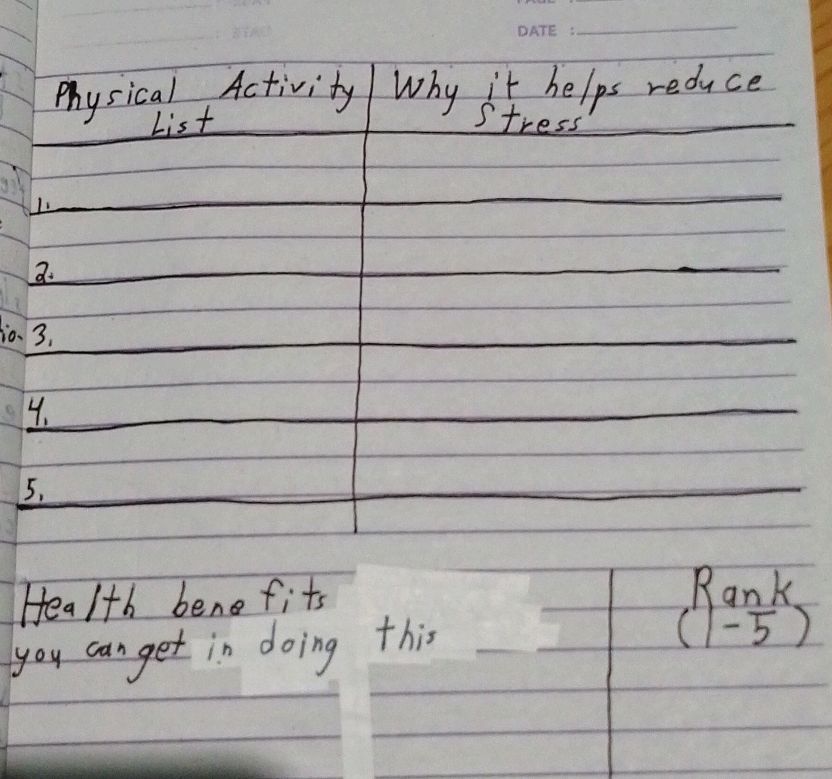 DATE :
Physical Activity
List
Why it helps reduce
Stress
1.
2.
3.
4.
5.
Health benefits
you can get in doing this
Rank
(1-5)